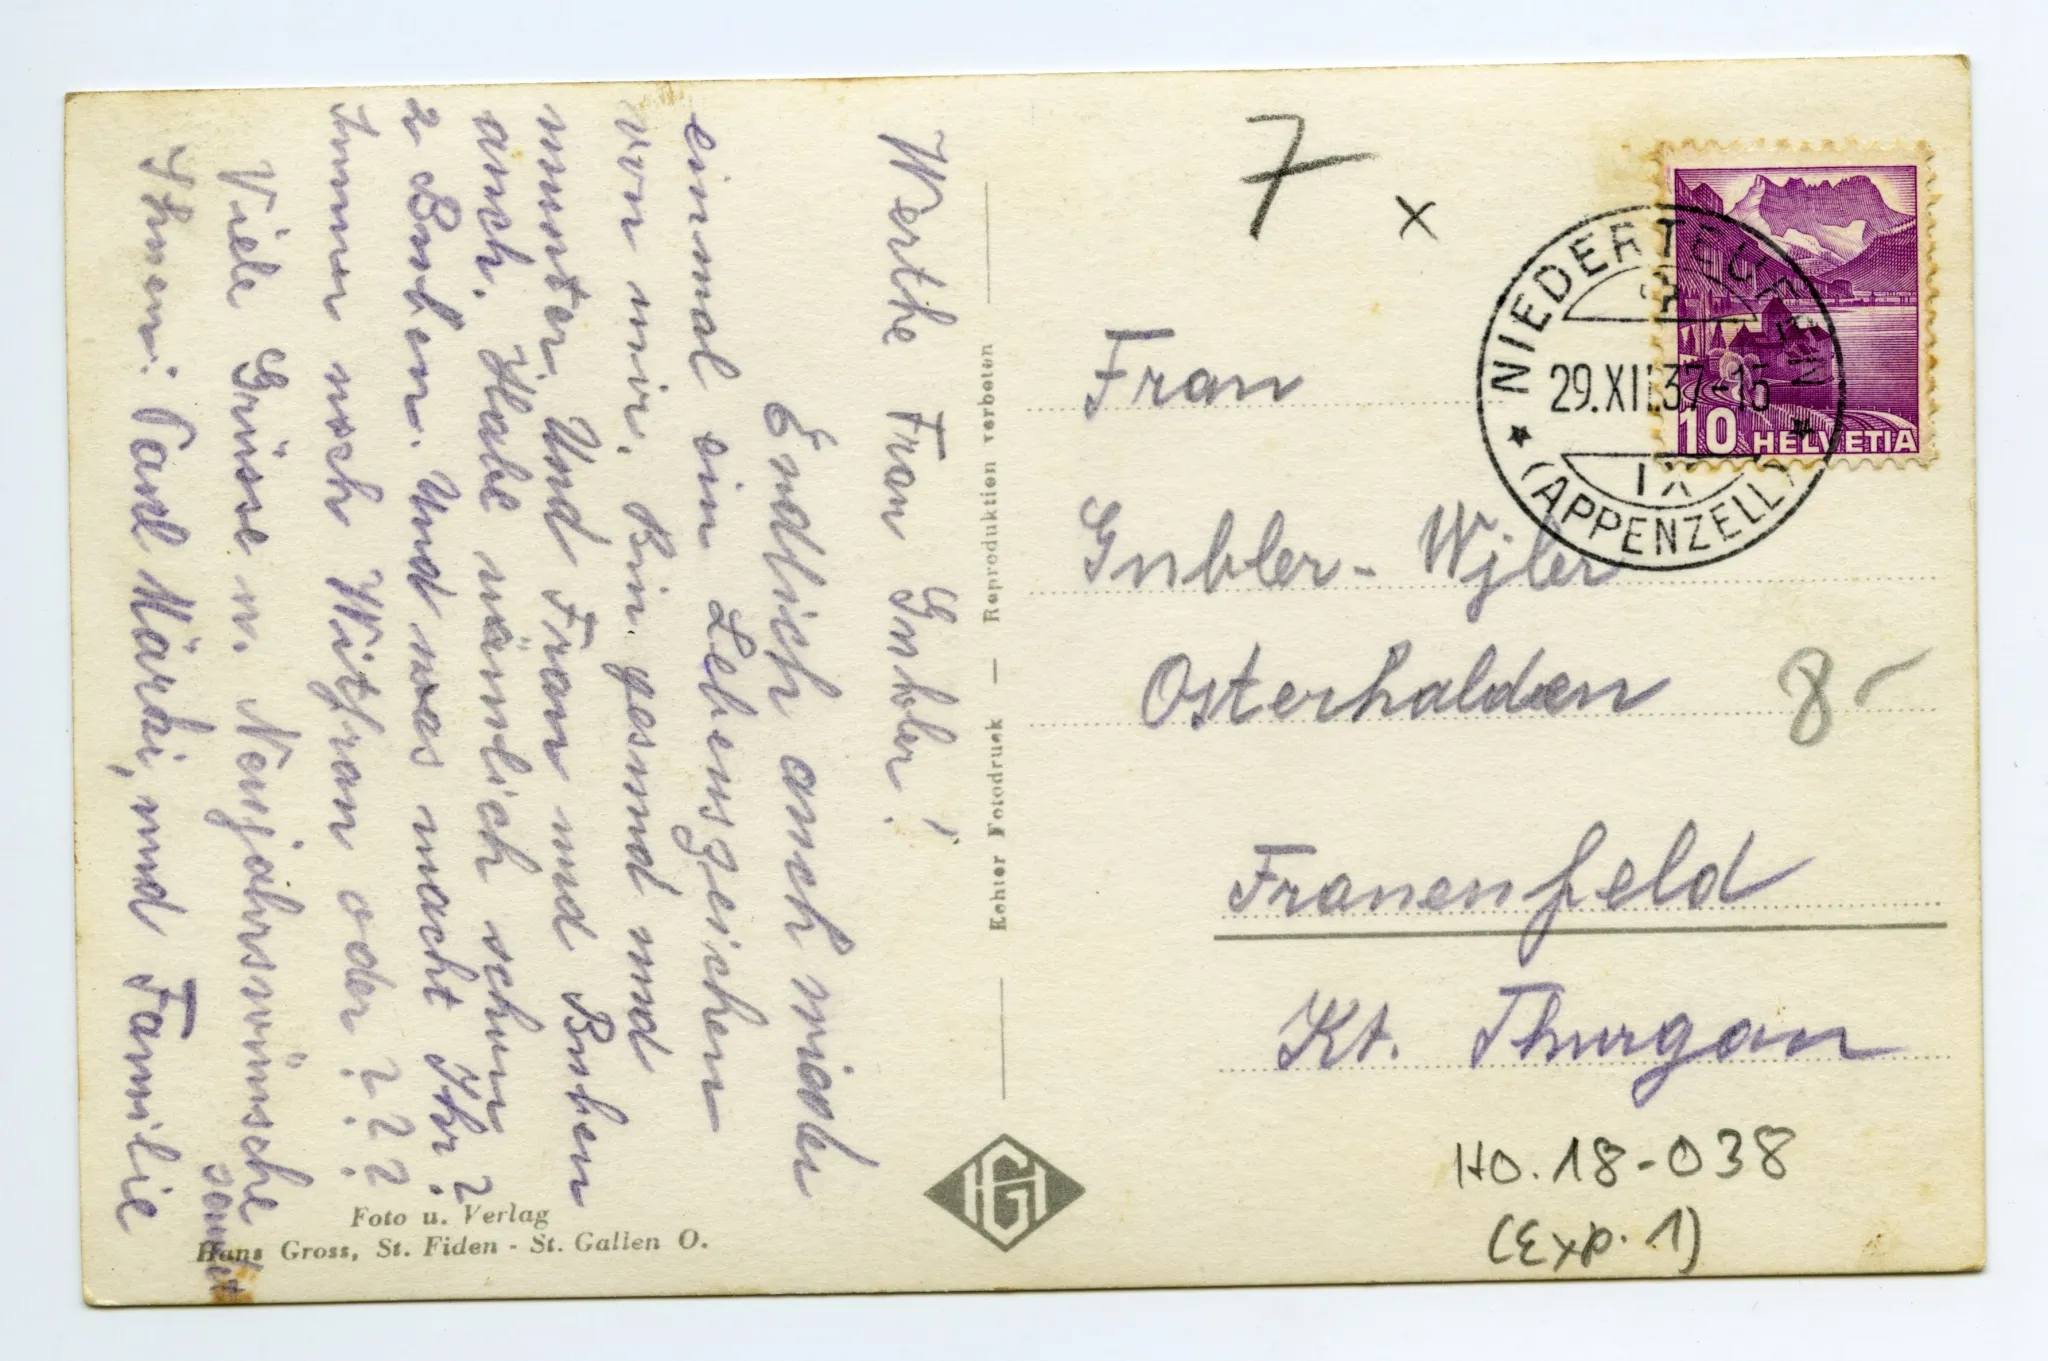 Werthe Frau Gubler!
Endlich auch wieder
einmal ein Lebenszeichen
von mir. Bin gesund und
munter. Und Frau und Buben
auch. Habe nämlich schon
2 Buben. Und was macht Ihr?
Immer noch Witfrau oder ? ? ?
Viele Grüsse u. Neujahrswünsche
sendet
Ihnen: Paul Märki, und Familie
Foto u. Verlag
Hans Gross, St. Fiden - St. Gallen O.
Echter Fotodruck — Reproduktion verboten
HGI
7 x
NIEDERTEUFEN
29.XII.37-15
IX
(APPENZELL)
10 HELVETIA
Frau
Gubler-Wyler
Osterhalden
8-
Frauenfeld
Kt. Thurgau
HO.18-038
(Exp. 1)